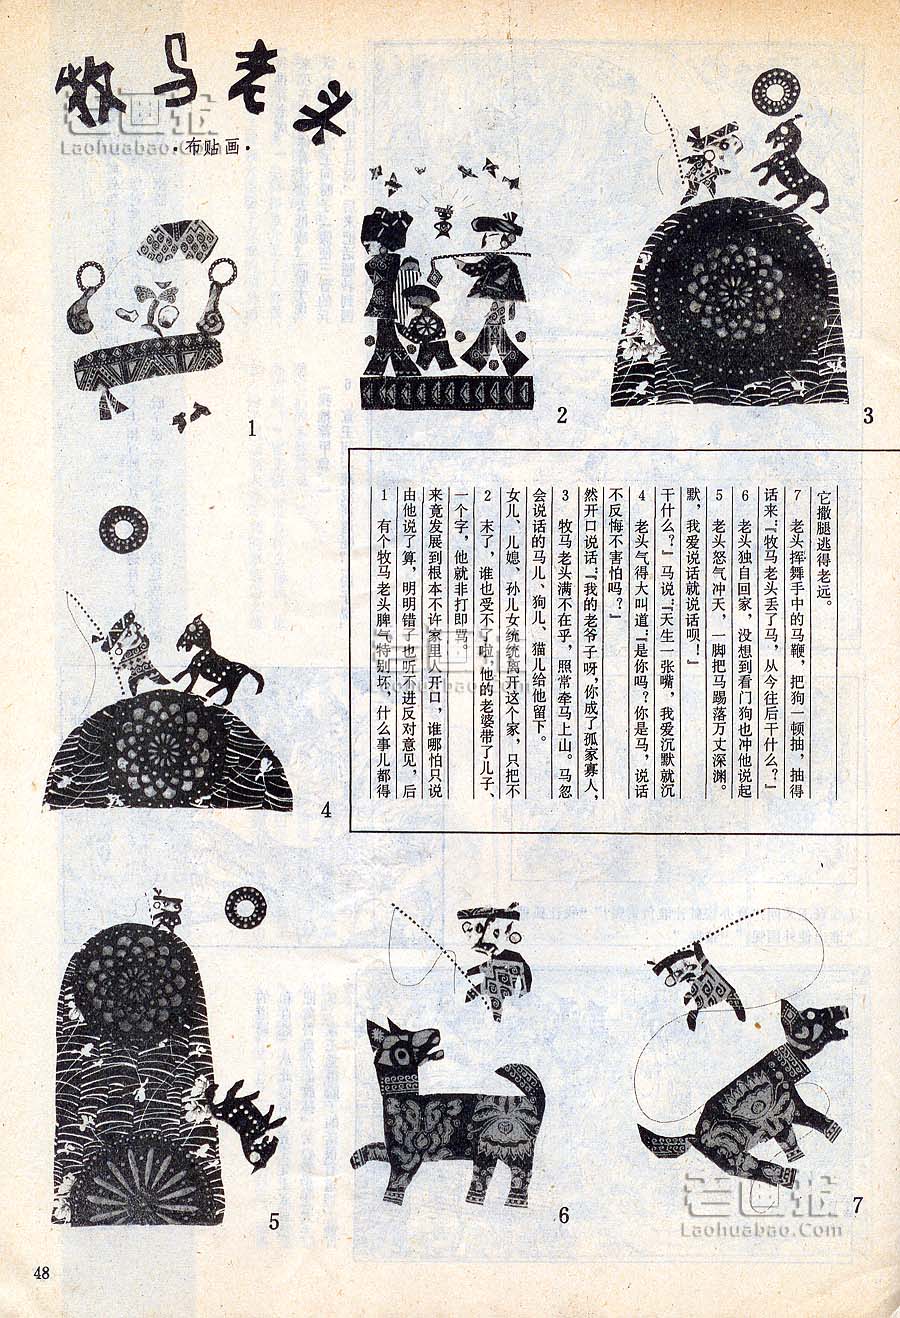 牧马老头
·布贴画·
1
2
3
4
1 有个牧马老头脾气特别坏，什么事儿都得
由他说了算，明明错了也听不进反对意见，后
来竟发展到根本不许家里人开口，谁哪怕只说
一个字，他就非打即骂。
2 末了，谁也受不了啦，他的老婆带了儿子、
女儿、儿媳、孙儿女统统离开这个家，只把不
会说话的马儿、狗儿、猫儿给他留下。
3 牧马老头满不在乎，照常牵马上山。马忽
然开口说话：“我的老爷子呀，你成了孤家寡人，
不反悔不害怕吗？”
4 老头气得大叫道：“是你吗？你是马，说话
干什么？”马说：“天生一张嘴，我爱沉默就沉
默，我爱说话就说话呗！”
5 老头怒气冲天，一脚把马踢落万丈深渊。
6 老头独自回家，没想到看门狗也冲他说起
话来：“牧马老头丢了马，从今往后干什么？”
7 老头挥舞手中的马鞭，把狗一顿抽，抽得
它撒腿逃得老远。
5
6
7
48
老画报
Laohuabao.Com
老画报
Laohuabao.Com
老画报
Laohuabao.Com